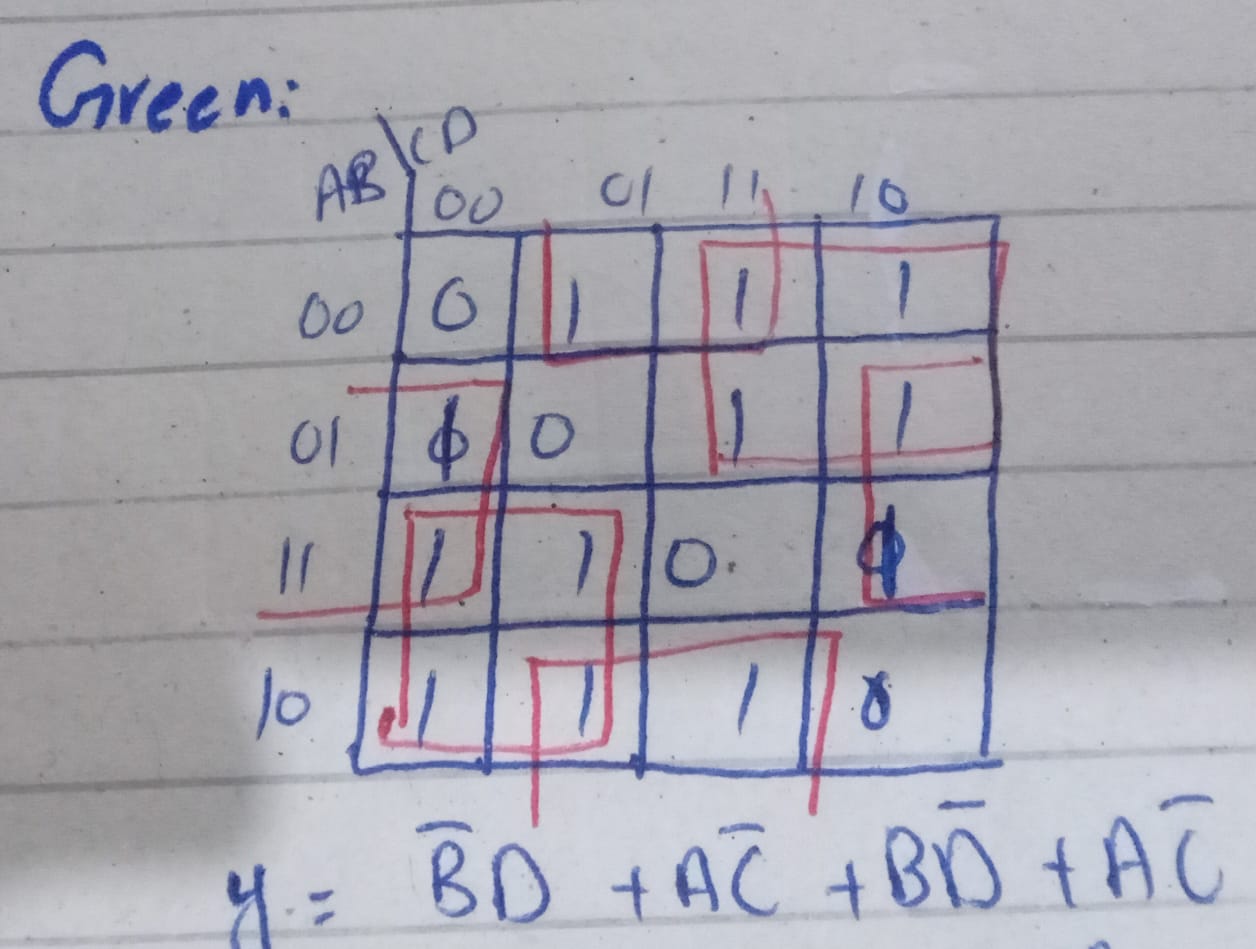 Green:
AB\CD
00 01 11 10
00 0 1 1 1
01 ϕ 0 1 1
11 1 1 0 ϕ
10 1 1 1 0
y = B̅D + AC̅ + BD̅ + AC̅